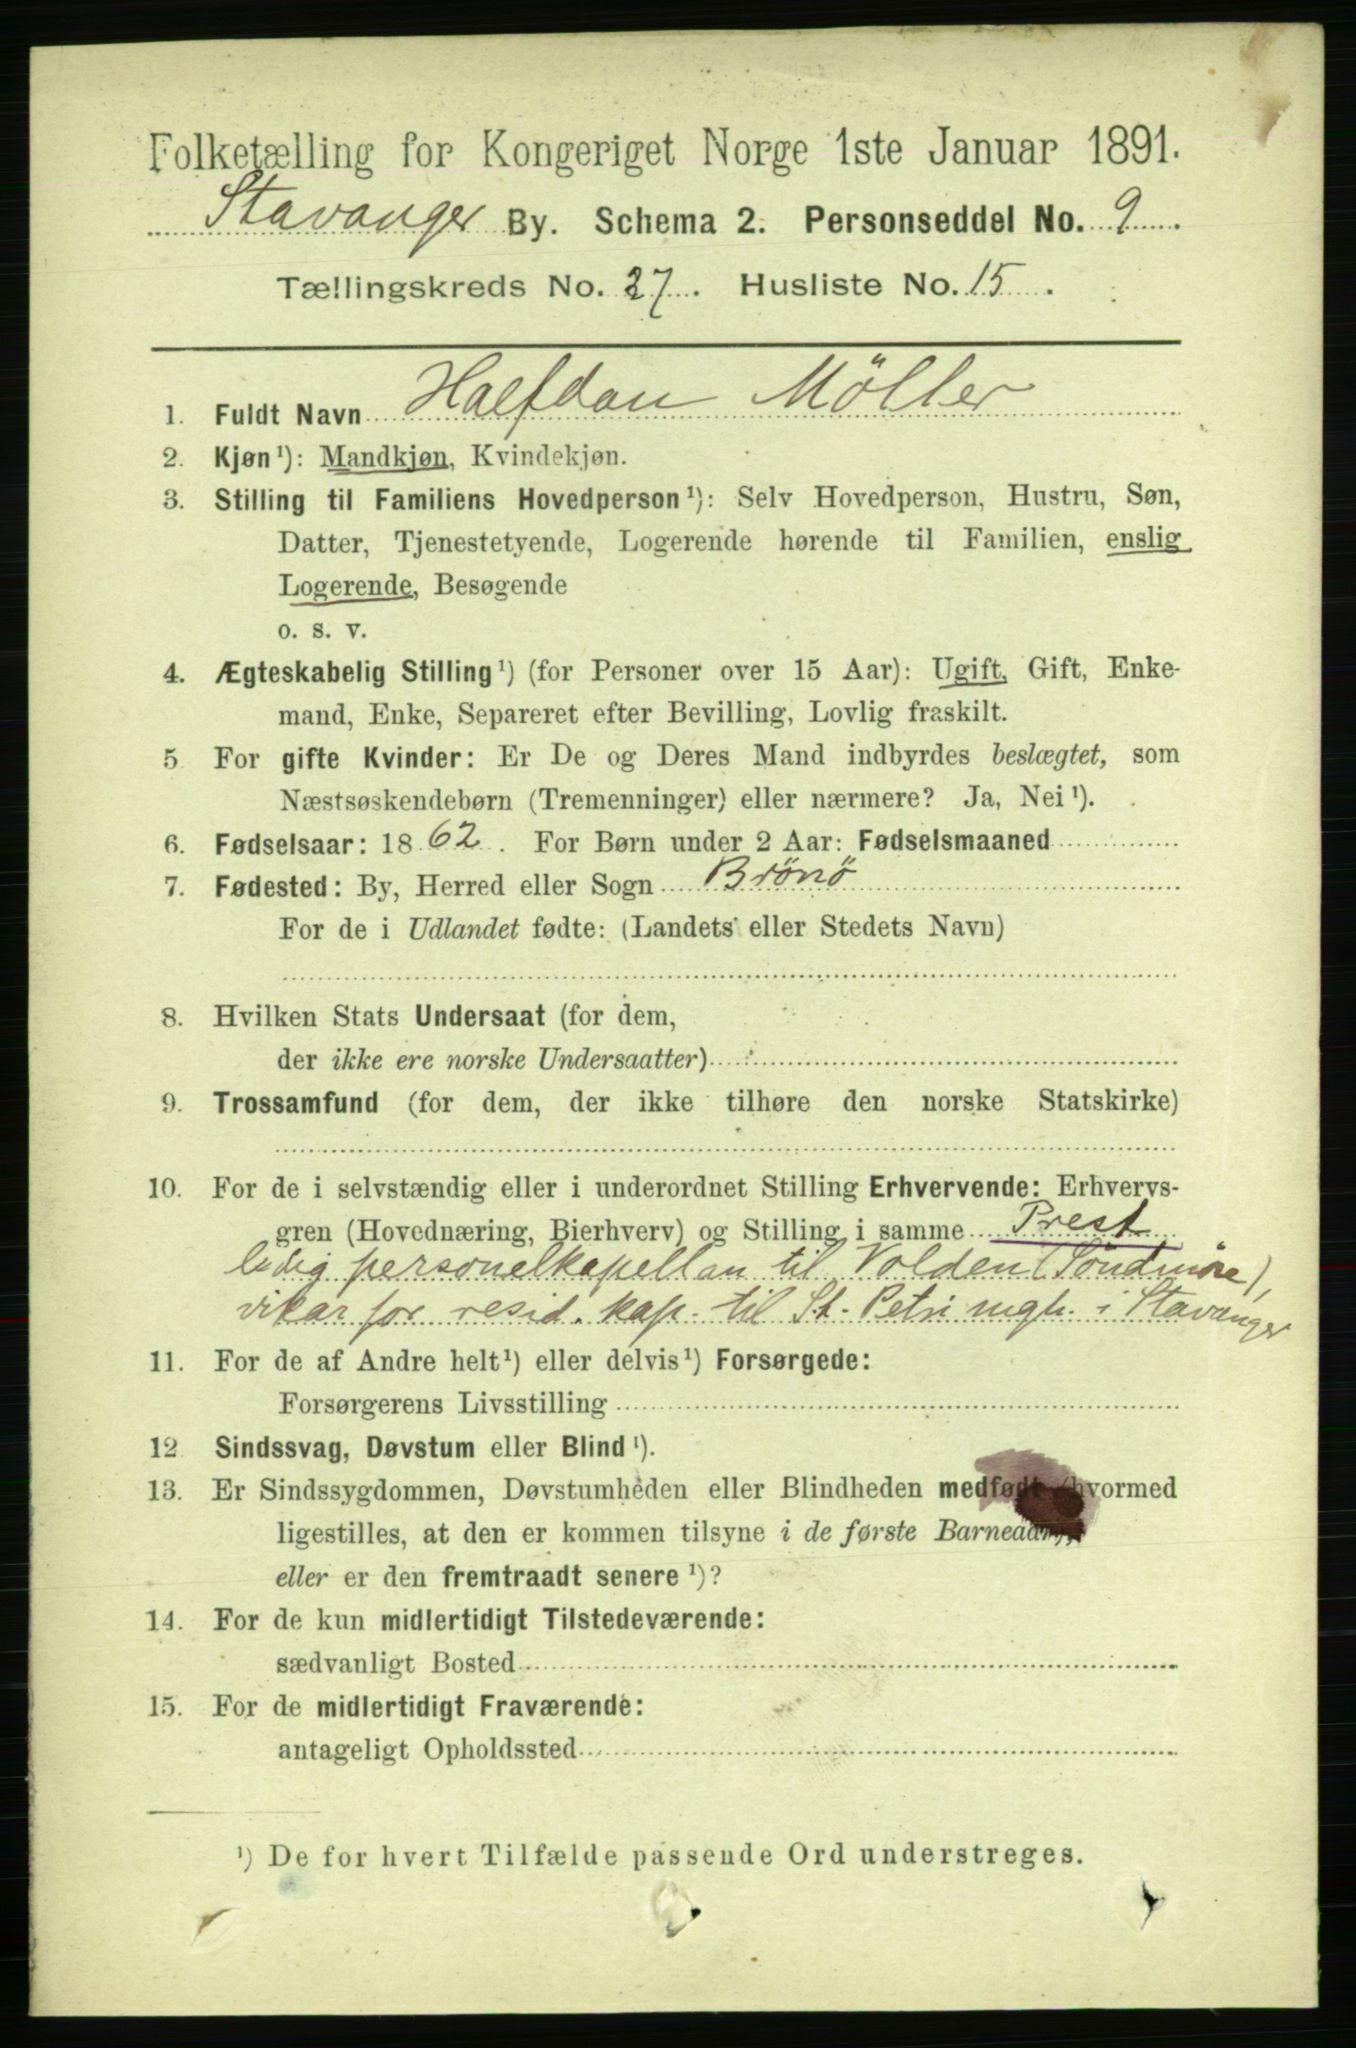 Folketælling for Kongeriget Norge 1ste Januar 1891.
Stavanger By. Schema 2. Personseddel No. 9.
Tællingskreds No. 27. Husliste No. 15.
1. Fuldt Navn Halfdan Möller
2. Kjøn¹): Mandkjøn, Kvindekjøn.
3. Stilling til Familiens Hovedperson¹): Selv Hovedperson, Hustru, Søn,
Datter, Tjenestetyende, Logerende hørende til Familien, enslig
Logerende, Besøgende
o. s. v.
4. Ægteskabelig Stilling¹) (for Personer over 15 Aar): Ugift, Gift, Enke-
mand, Enke, Separeret efter Bevilling, Lovlig fraskilt.
5 For gifte Kvinder: Er De og Deres Mand indbyrdes beslægtet, som
Næstsøskendebørn (Tremenninger) eller nærmere? Ja, Nei¹).
6. Fødselsaar: 1862. For Børn under 2 Aar: Fødselsmaaned
7. Fødested: By, Herred eller Sogn Brönö
For de i Udlandet fødte: (Landets eller Stedets Navn)
8. Hvilken Stats Undersaat (for dem,
der ikke ere norske Undersaatter)
9. Trossamfund (for dem, der ikke tilhøre den norske Statskirke)
10. For de i selvstændig eller i underordnet Stilling Erhvervende: Erhvervs-
gren (Hovednæring, Bierhverv) og Stilling i samme Prest
ledig personelkapellan til Volden (Söndmöre),
vikar for resid. kap. til St. Petri mgh. i Stavanger
11. For de af Andre helt¹) eller delvis¹) Forsørgede:
Forsørgerens Livsstilling
12 Sindssvag, Døvstum eller Blind¹).
13. Er Sindssygdommen, Døvstumheden eller Blindheden medfødt (hvormed
ligestilles, at den er kommen tilsyne i de første Barneaar),
eller er den fremtraadt senere¹)?
14. For de kun midlertidigt Tilstedeværende:
sædvanligt Bosted
15. For de midlertidigt Fraværende:
antageligt Opholdssted
¹) De for hvert Tilfælde passende Ord understreges.